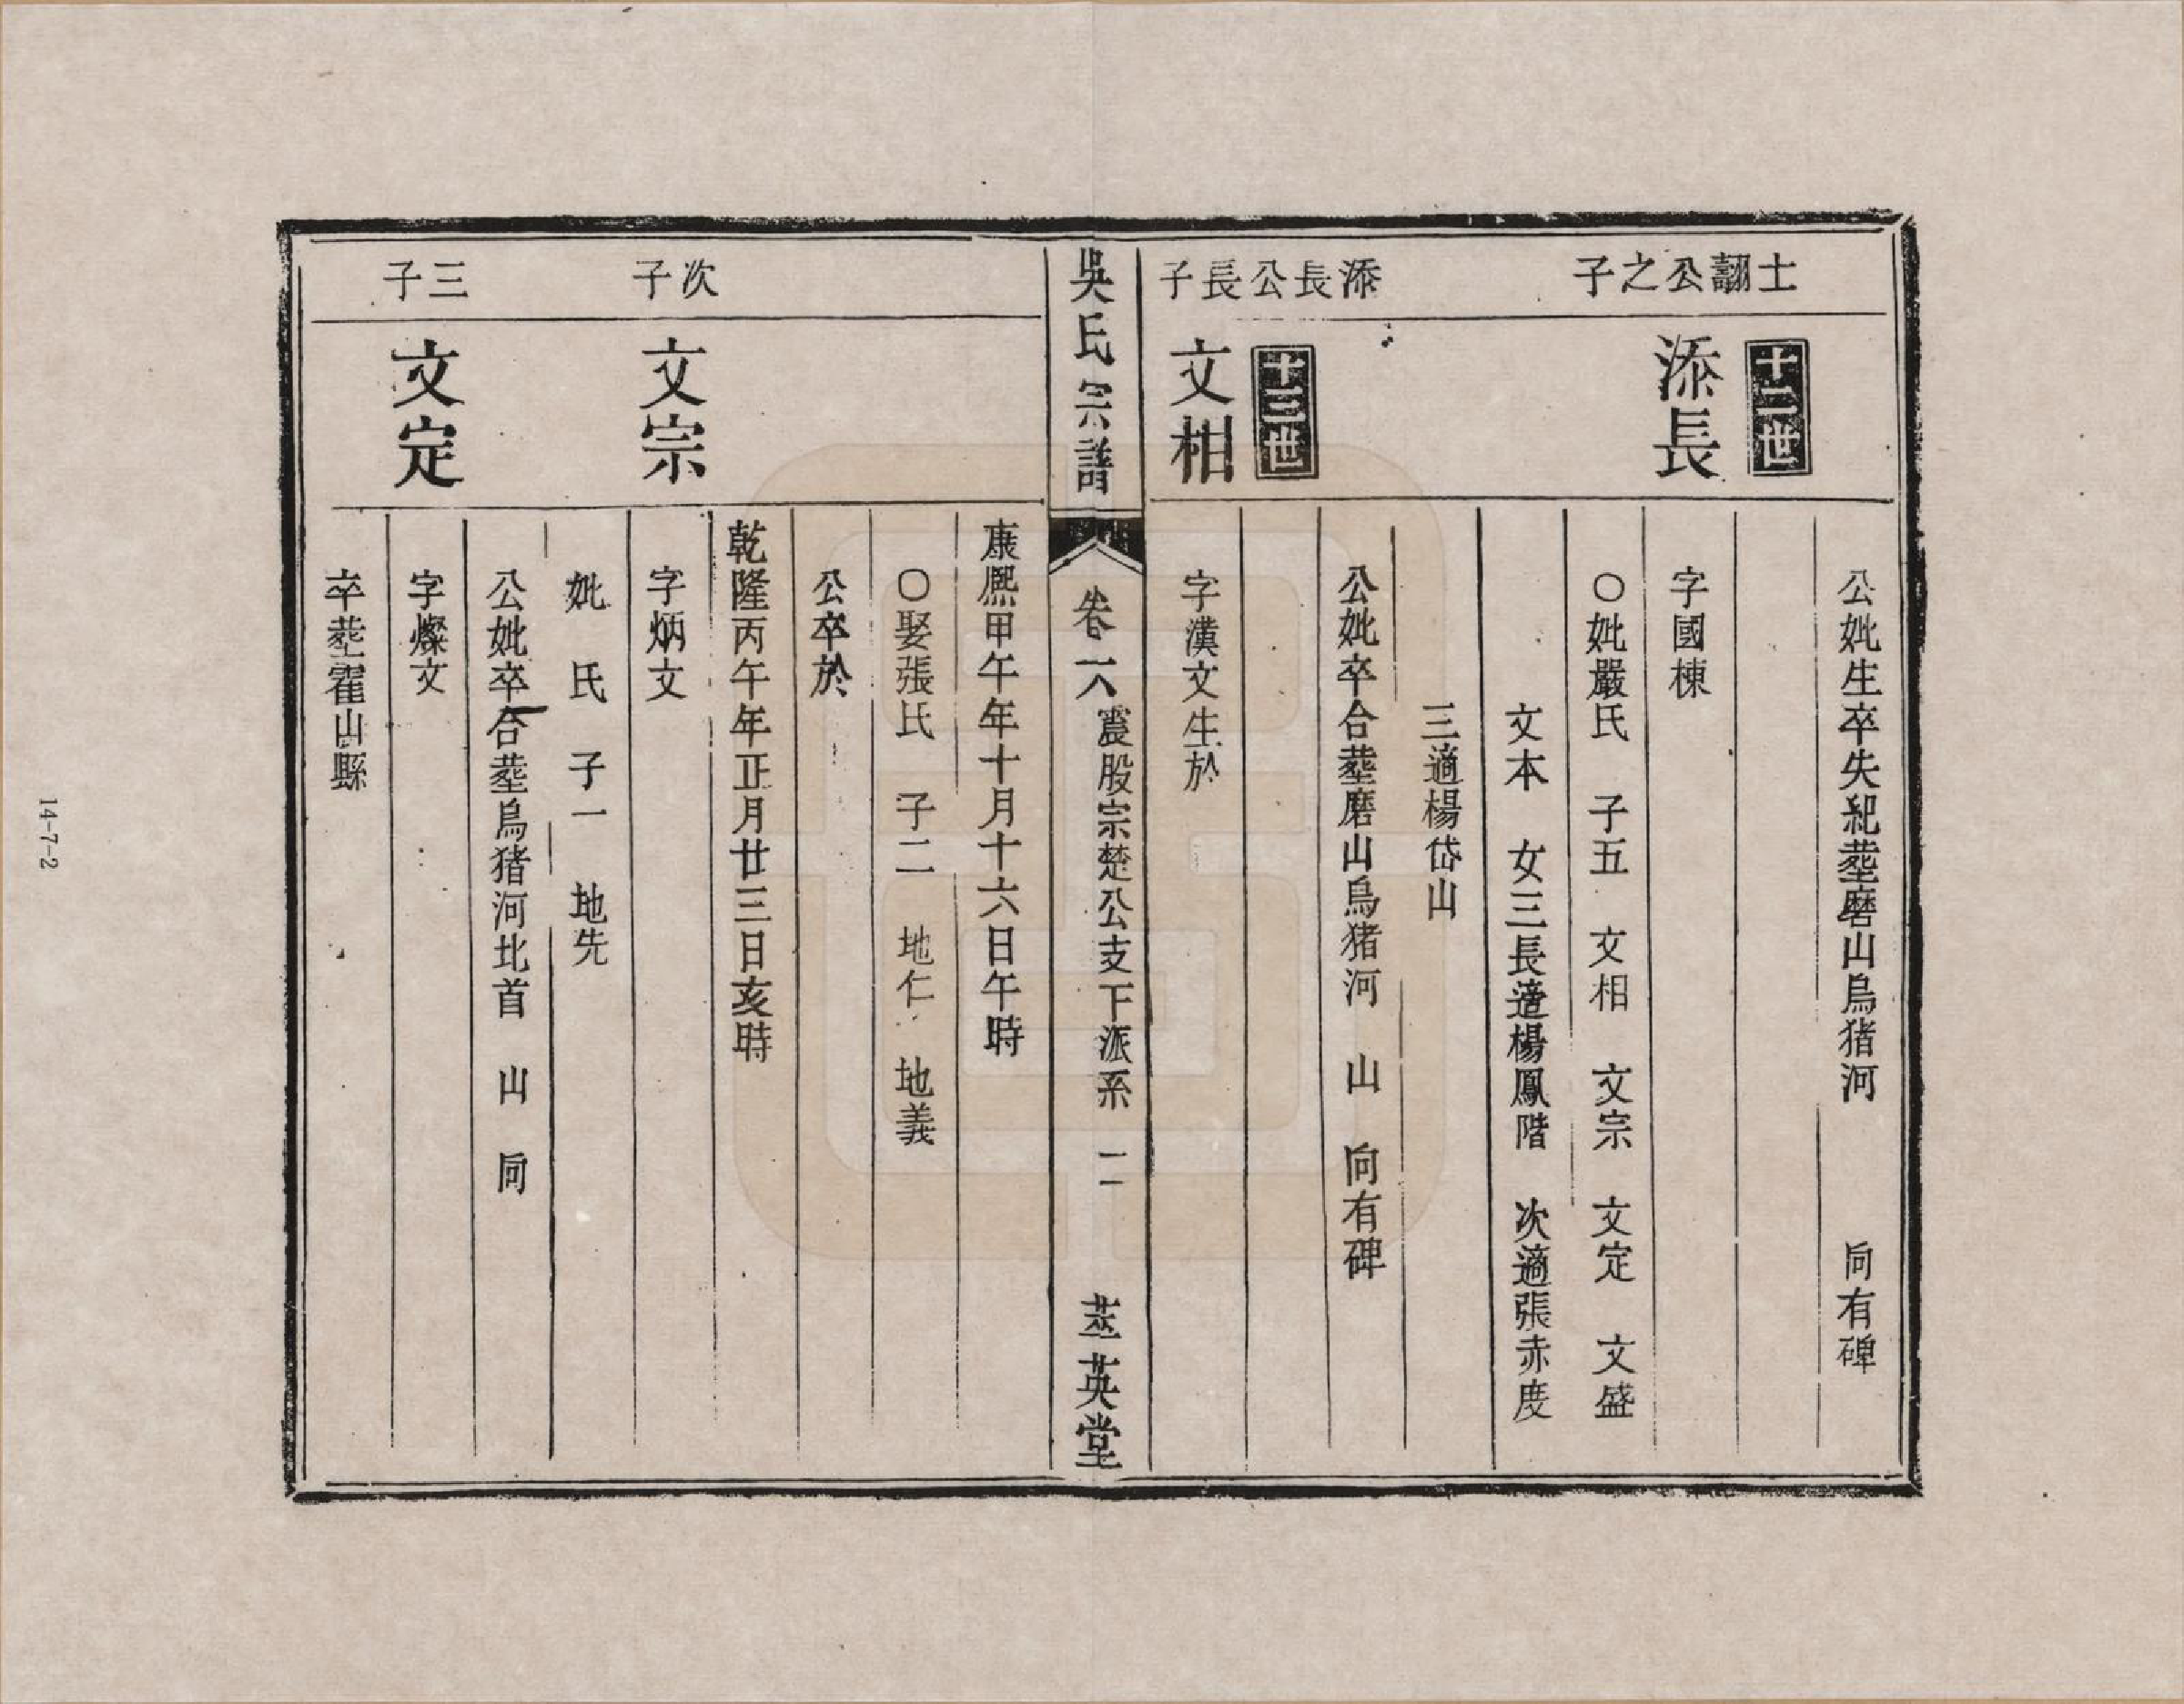 公妣生卒失紀塟磨山烏猪河 向有碑
士翻公之子
十二世
添長
字國棟
○妣嚴氏 子五 文相 文宗 文定 文盛
文本 女三長適楊鳳階 次適張赤度
三適楊岱山
公妣卒合塟磨山烏猪河 山 向有碑
添長公長子
十三世
文相
字漢文生於
吳氏宗譜
卷一六 震股宗楚公支下派系 二
英堂
康熙甲午年十月十六日午時
○娶張氏 子二 地仁 地義
公卒於
乾隆丙午年正月廿三日亥時
次子
文宗
字炳文
妣 氏 子一 地先
公妣卒合塟烏猪河北首 山 向
三子
文定
字燦文
卒塟霍山縣
14-7-2